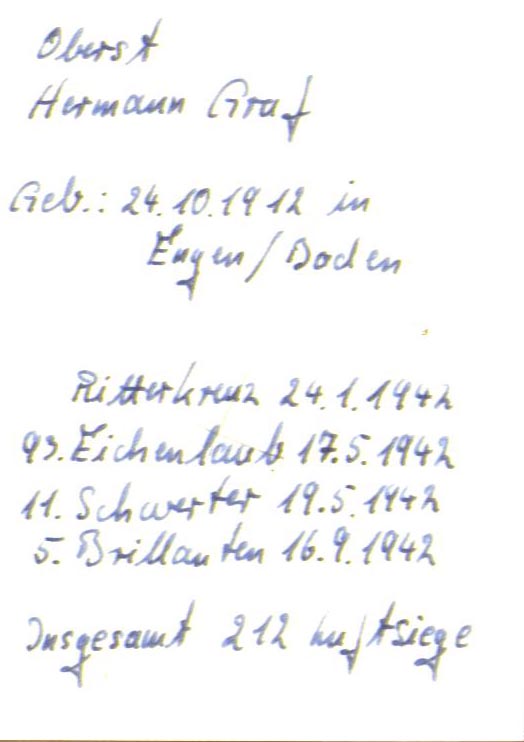 Oberst
Hermann Graf
Geb.: 24.10.1912 in
Engen/Baden
Ritterkreuz 24.1.1942
93. Eichenlaub 17.5.1942
11. Schwerter 19.5.1942
5. Brillanten 16.9.1942
Insgesamt 212 Luftsiege